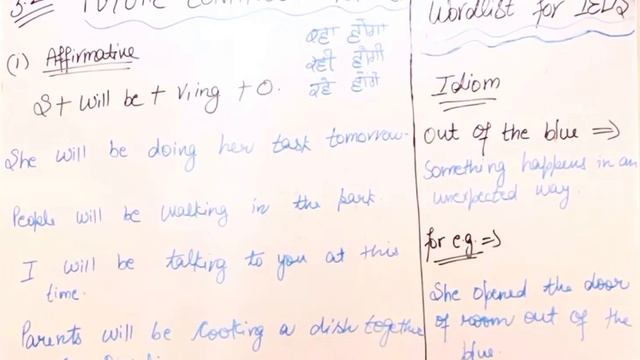 5.2 FUTURE CONTINUOUS
(i) Affirmative
S + will be + V1ing + O.
ਰਹਾ ਹੋਗਾ
ਰਹੀ ਹੋਗੀ
ਰਹੇ ਹੋਗੇ
She will be doing her task tomorrow.
People will be walking in the park.
I will be talking to you at this
time.
Parents will be cooking a dish together
Wordlist for IELTS
Idiom
out of the blue ⇒
Something happens in an
unexpected way.
for e.g. ⇒
She opened the door
of room out of the
blue.